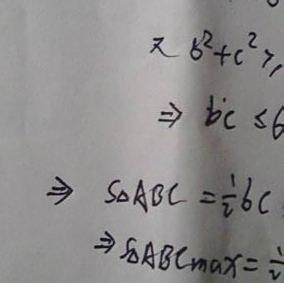 又 b²+c² ≥
⇒ bc ≤ 6
⇒ S△ABC = ½bc
⇒ S△ABCmax = ½